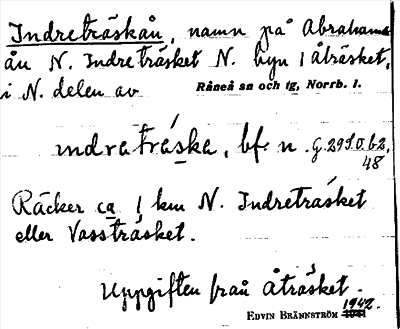 Indreträskån, namn på Abrahams-
ån N. Indreträsket N. byn Åträsket,
i N. delen av Råneå sn och tg, Norrb. l.
ındratráska, bf. n.
48
Räcker ca 1 km N. Indreträsket
eller Vassträsket.
Uppgiften från Åträsket.
1942.
EDVIN BRÄNNSTRÖM 1941